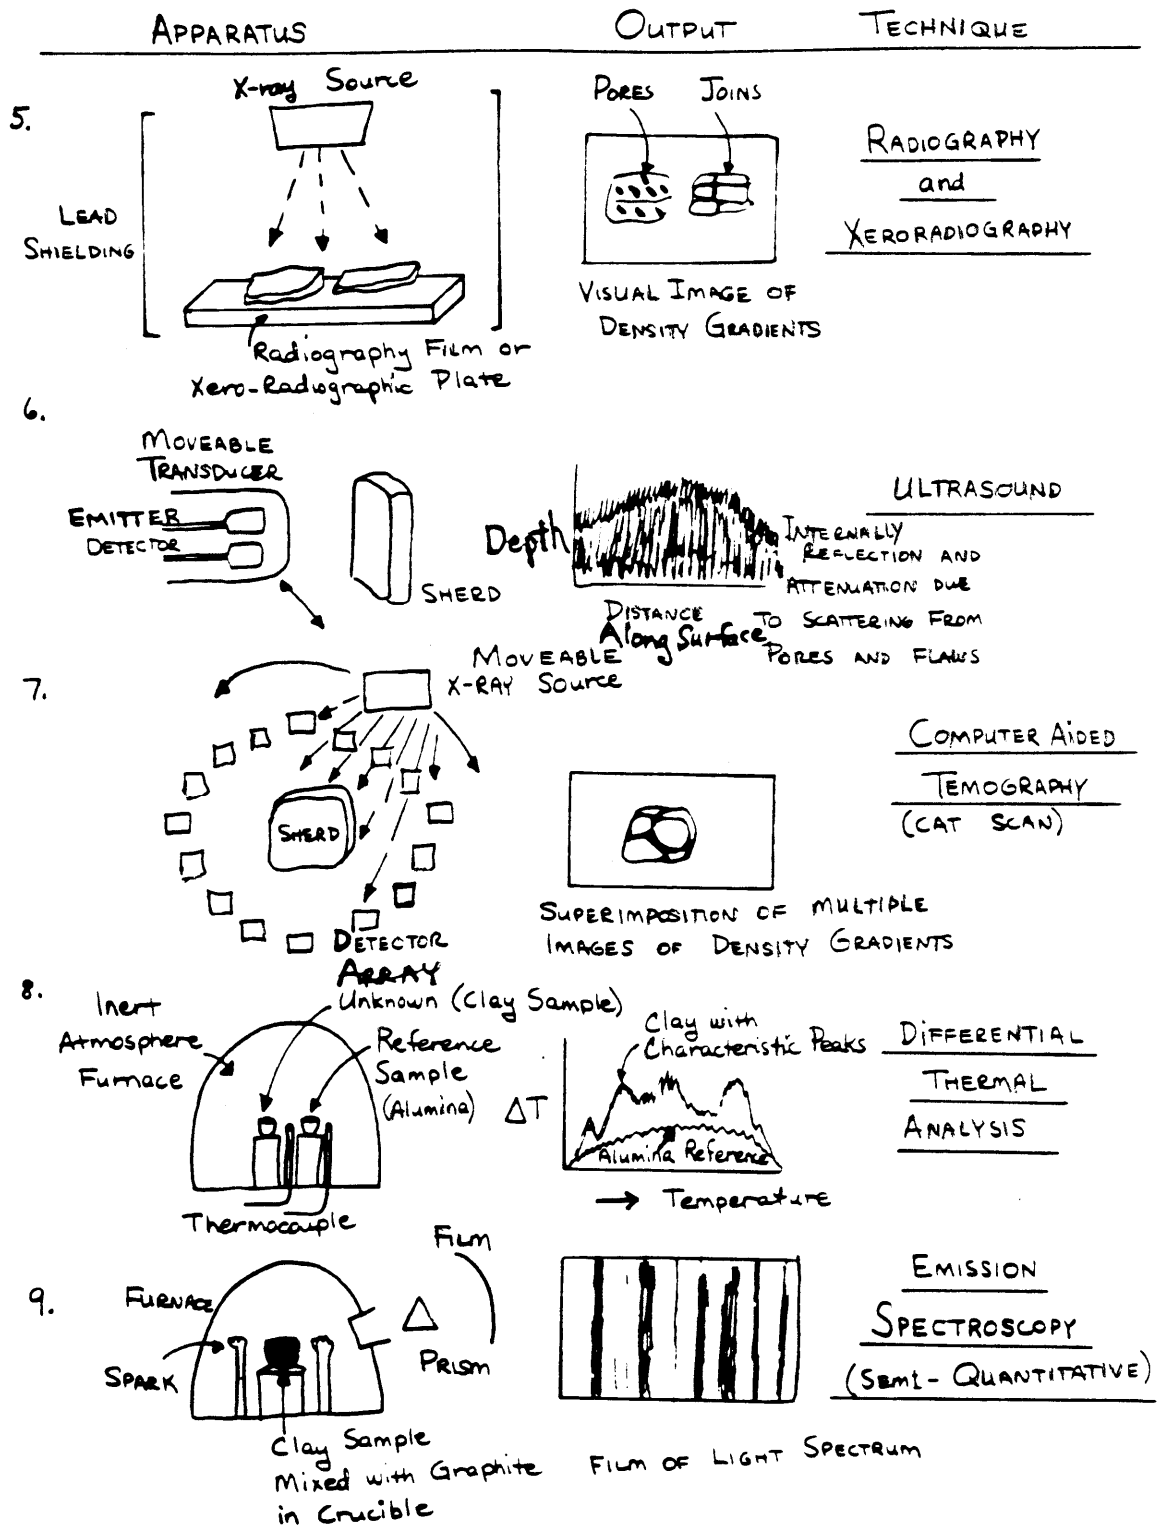 APPARATUS OUTPUT TECHNIQUE
5.
X-ray Source
LEAD
SHIELDING
Radiography Film or
Xero-Radiographic Plate
PORES JOINS
VISUAL IMAGE OF
DENSITY GRADIENTS
RADIOGRAPHY
and
XERORADIOGRAPHY
6.
MOVEABLE
TRANSDUCER
EMITTER
DETECTOR
SHERD
Depth
DISTANCE
Along Surface
INTERNALLY
REFLECTION AND
ATTENUATION DUE
TO SCATTERING FROM
PORES AND FLAWS
ULTRASOUND
7.
MOVEABLE
X-RAY Source
SHERD
DETECTOR
ARRAY
SUPERIMPOSITION OF MULTIPLE
IMAGES OF DENSITY GRADIENTS
COMPUTER AIDED
TEMOGRAPHY
(CAT SCAN)
8.
Inert
Atmosphere
Furnace
Unknown (Clay Sample)
Reference
Sample
(Alumina)
Thermocouple
ΔT
Clay with
Characteristic Peaks
Alumina Reference
→ Temperature
DIFFERENTIAL
THERMAL
ANALYSIS
9.
FURNACE
SPARK
FILM
PRISM
Clay Sample
Mixed with Graphite
in Crucible
FILM OF LIGHT SPECTRUM
EMISSION
SPECTROSCOPY
(SEMI-QUANTITATIVE)